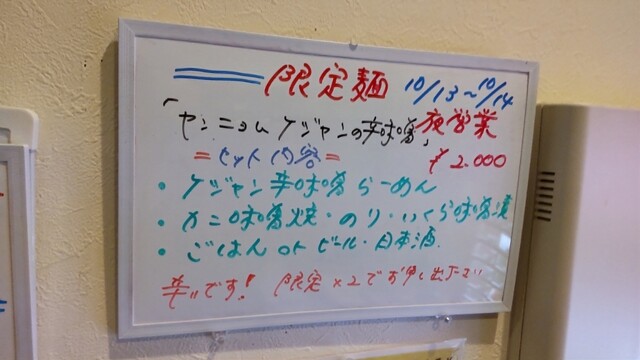 限定麺 10/13～10/14
「ヤンニョムケジャンの辛味噌」夜営業
=セット内容= ¥2.000
・ケジャン辛味噌らーめん
・カニ味噌焼・のり・いくら味噌漬
・ごはん or ビール・日本酒
辛いです! 限定×2でお申し出下さい